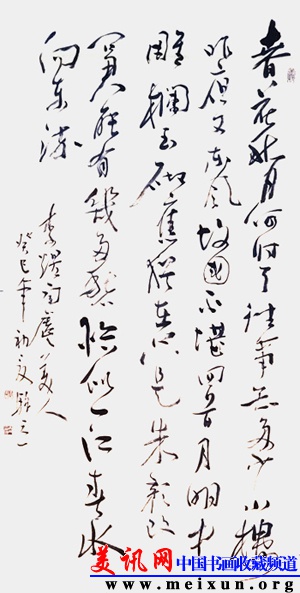 春花秋月何时了往事知多少小樓
昨夜又东风故國不堪回首月明中
雕欄玉砌應猶在只是朱颜改
问君能有幾多愁恰似一江春水
向东流
李煜词虞美人
癸巳年初夏
美讯网 中国书画收藏频道
www.meixun.org